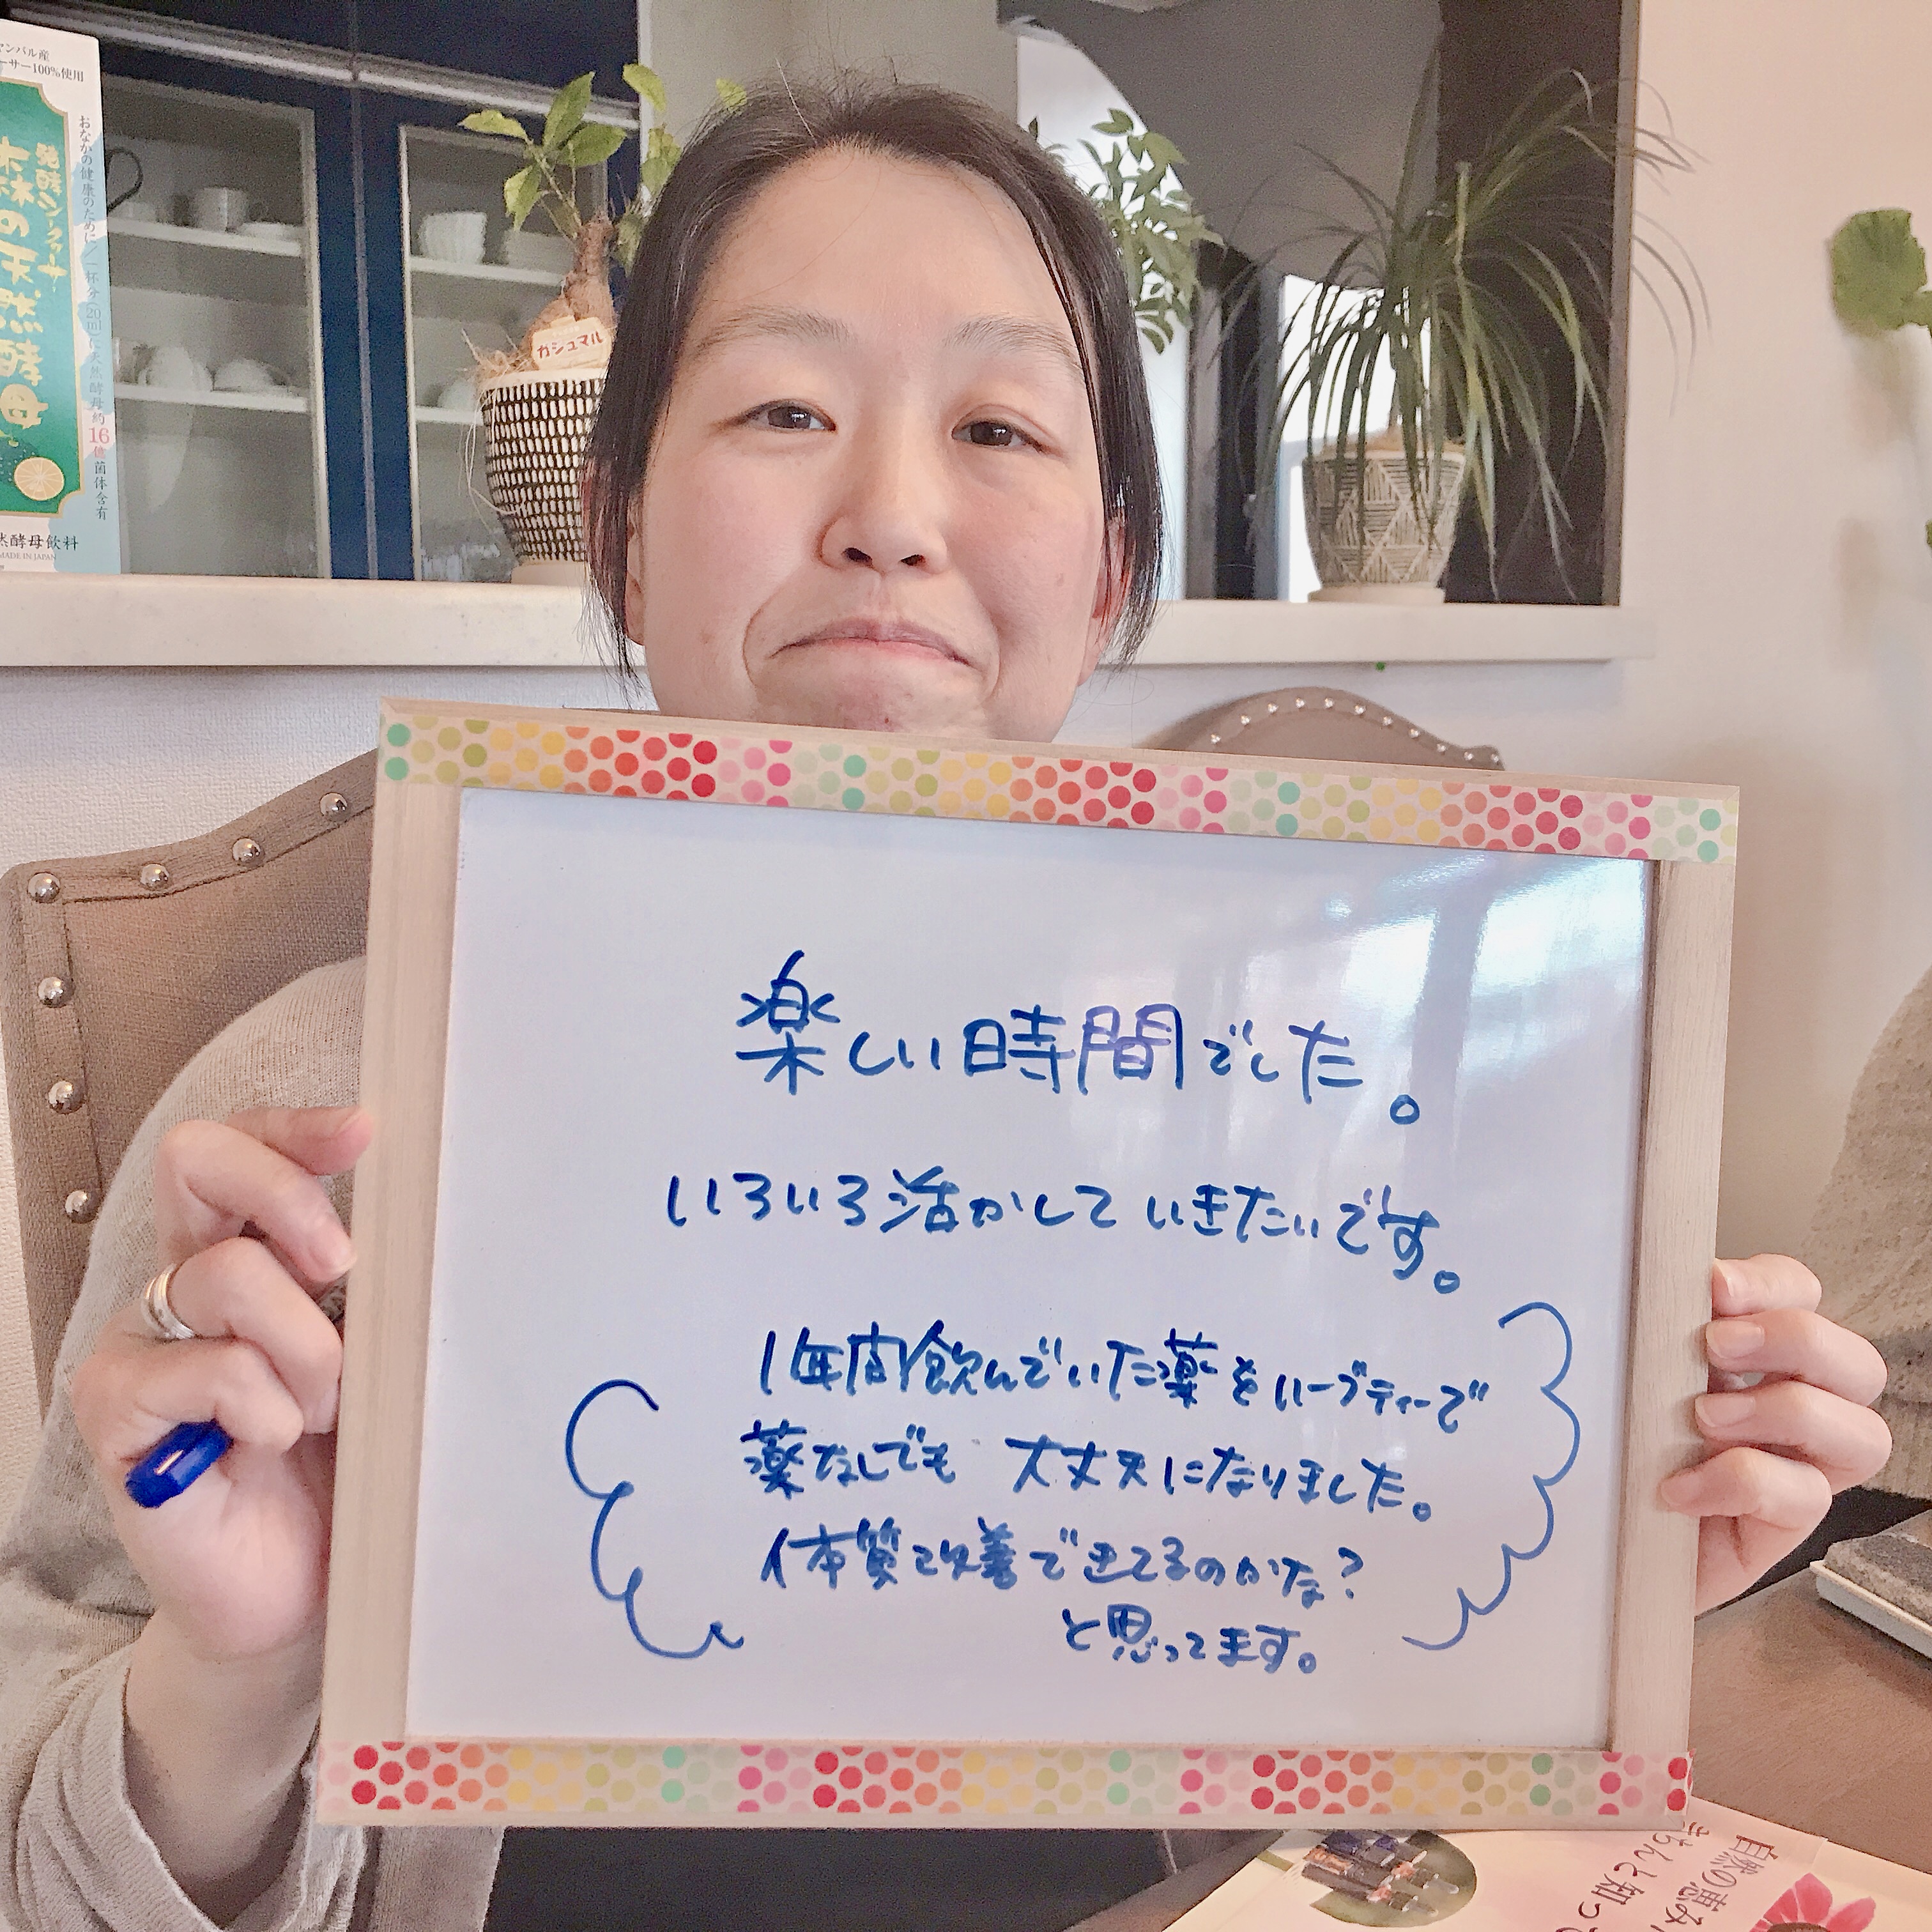 ンバル産
ーサー100%使用
発酵シークヮーサー
森の天然酵母
おなかの健康のために/一杯分20mlに天然酵母約16億菌体含有
然酵母飲料
MADE IN JAPAN
ガジュマル
楽しい時間でした。
いろいろ活かしていきたいです。
1年間飲んでいた薬をハーブティーで
薬なしでも 大丈夫になりました。
体質改善できてるのかな?
と思ってます。
自然の恵み
きちんと知っ